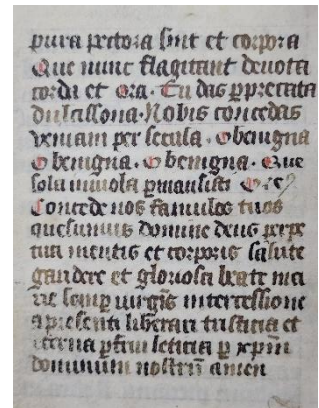 pura pectora sint et corpora
Que nunc flagitant deuota
corda et ora. Tu das p precata
dulcissona. Nobis concedas
veniam per secula. O benigna
O benigna. O benigna. Que
sola inuiola pmansisti Ore
Concede nos famulos tuos
quesumus domine deus perpe
tua mentis et corporis salute
gaudere et gloriosa beate ma
rie semp uirgis intercessione
a presenti liberari tristicia et
eterna pfrui leticia p xpm
dominum nostrum amen